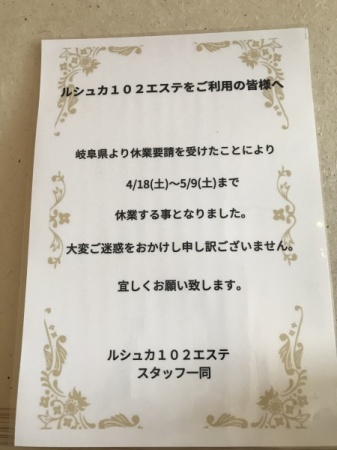 ルシュカ１０２エステをご利用の皆様へ
岐阜県より休業要請を受けたことにより
4/18(土)～5/9(土)まで
休業する事となりました。
大変ご迷惑をおかけし申し訳ございません。
宜しくお願い致します。
ルシュカ１０２エステ
スタッフ一同